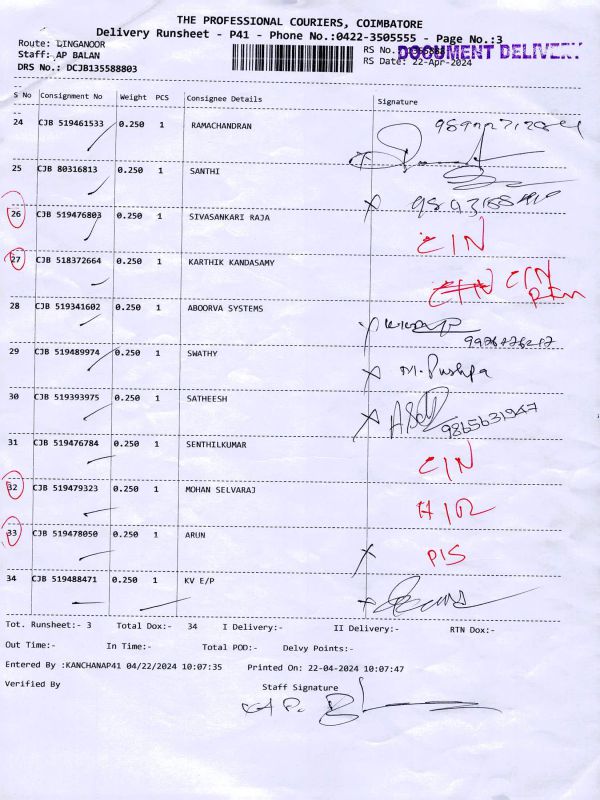 THE PROFESSIONAL COURIERS, COIMBATORE
Delivery Runsheet - P41 - Phone No.:0422-3505555 - Page No.:3
Route: LINGANOOR RS No.
DOCUMENT DELIVERY
Staff: AP BALAN RS Date: 22-Apr-2024
DRS No.: DCJB135588803
S No Consignment No Weight PCS Consignee Details Signature
24 CJB 519461533 0.250 1 RAMACHANDRAN
25 CJB 80316813 0.250 1 SANTHI
26 CJB 519476803 0.250 1 SIVASANKARI RAJA CIN
27 CJB 518372664 0.250 1 KARTHIK KANDASAMY CIN
28 CJB 519341602 0.250 1 ABOORVA SYSTEMS
29 CJB 519489974 0.250 1 SWATHY M. Pushpa
30 CJB 519393975 0.250 1 SATHEESH 9865631947
31 CJB 519476784 0.250 1 SENTHILKUMAR CIN
32 CJB 519479323 0.250 1 MOHAN SELVARAJ
33 CJB 519478050 0.250 1 ARUN PIS
34 CJB 519488471 0.250 1 KV E/P
Tot. Runsheet:- 3 Total Dox:- 34 I Delivery:- II Delivery:- RTN Dox:-
Out Time:- In Time:- Total POD:- Delvy Points:-
Entered By :KANCHANAP41 04/22/2024 10:07:35 Printed On: 22-04-2024 10:07:47
Verified By Staff Signature